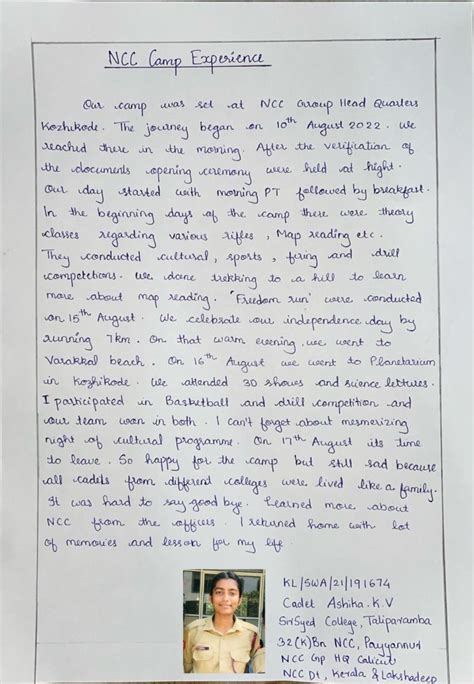 NCC Camp Experience
Our camp was set at NCC Group Head Quarters
Kozhikode. The journey began on 10th August 2022. We
reached there in the morning. After the verification of
the documents opening ceremony were held at night.
Our day started with morning PT followed by breakfast.
In the beginning days of the camp there were theory
classes regarding various rifles, Map reading etc.
They conducted cultural, sports, firing and drill
competetions. We done trekking to a hill to learn
more about map reading. 'Freedom run' were conducted
on 15th August. We celebrate our independence day by
running 7km. On that warm evening we went to
Varakkal beach. On 16th August we went to Planetarium
in Kozhikode. We attended 3D shows and science lectures.
I participated in Basketball and drill competition and
our team won in both. I can't forget about mesmerizing
night of cultural programme. On 17th August its time
to leave. So happy for the camp but still sad because
all cadets from different colleges were lived like a family.
It was hard to say good bye. Learned more about
NCC from the officers. I returned home with lot
of memories and lesson for my life.
KL/SWA/21/191674
Cadet Ashika.K.V
SriSyed College, Taliparamba
32(K)Bn NCC, Payyannur
NCC Gp HQ Calicut
NCC Dt, Kerala & Lakshadeep